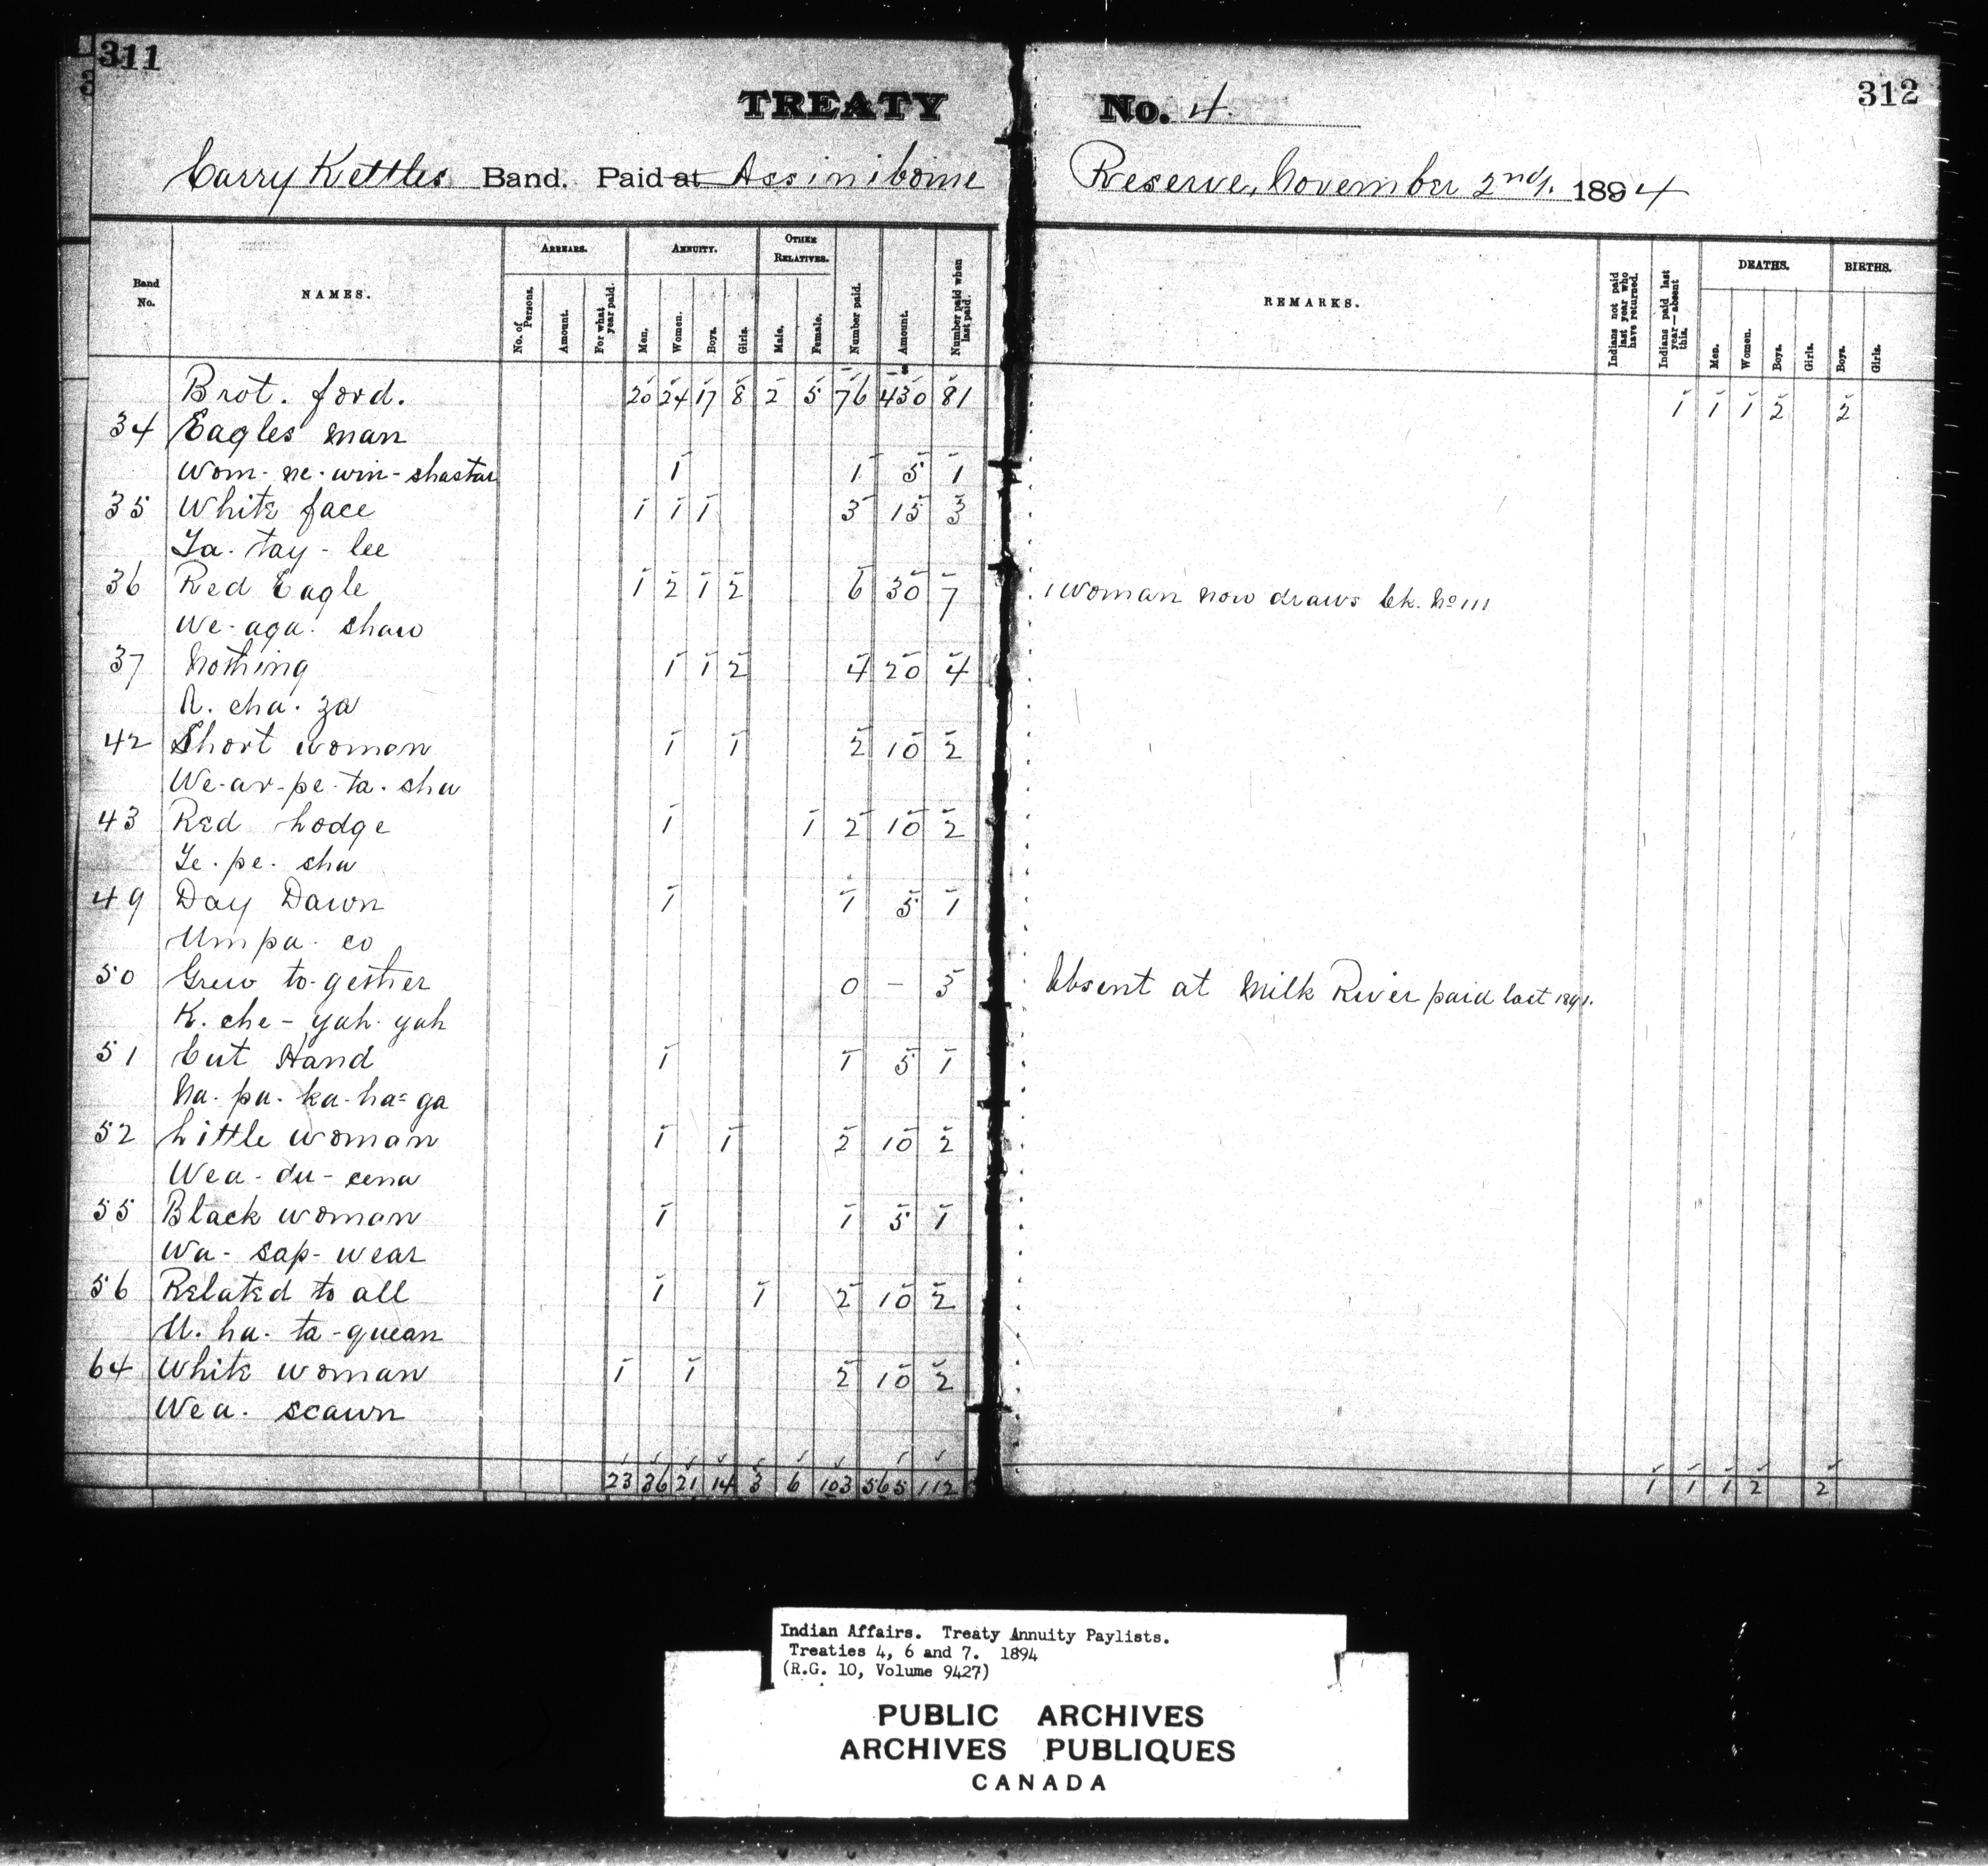 311
312
TREATY No. 4.
Carry Kettles Band. Paid at Assiniboine Reserve, November 2nd/. 1894
Band No.
NAMES.
ARREARS.
No. of Persons.
Amount.
For what year paid.
ANNUITY.
Men.
Women.
Boys.
Girls.
OTHER RELATIVES.
Male.
Female.
Number paid.
Amount.
Number paid when last paid.
REMARKS.
Indians not paid last year who have returned.
Indians paid last year—absent this.
DEATHS.
Men.
Women.
Boys.
Girls.
BIRTHS.
Boys.
Girls.
Brot. ford. 20 24 17 8 2 5 76 430 81 1 1 1 2 2
34 Eagles man
Wom-ne-win-shastar 1 1 5 1
35 White face 1 1 1 3 15 3
Ta-tay-lee
36 Red Eagle 1 2 1 2 6 30 7 1 Woman now draws tk. No 111
We-aga-shaw
37 Nothing 1 1 2 4 20 4
A. cha. za
42 Short woman 1 1 2 10 2
We-ar-pe-ta-sha
43 Red Lodge 1 1 2 10 2
Te-pe-sha
49 Day Dawn 1 1 5 1
Umpa-co
50 Grew to-gether 0 – 5 Absent at Milk River paid last 1891.
K. che-yah-yah
51 Cut Hand 1 1 5 1
Na-pa-ka-ha-ga
52 Little woman 1 1 2 10 2
Wea-du-cena
55 Black woman 1 1 5 1
Wa-sap-wear
56 Related to all 1 1 2 10 2
U. ha. ta-quean
64 White woman 1 1 2 10 2
Wea. scawn
23 36 21 14 3 6 103 565 112 1 1 1 2 2
Indian Affairs. Treaty Annuity Paylists.
Treaties 4, 6 and 7. 1894
(R.G. 10, Volume 9427)
PUBLIC ARCHIVES
ARCHIVES PUBLIQUES
CANADA